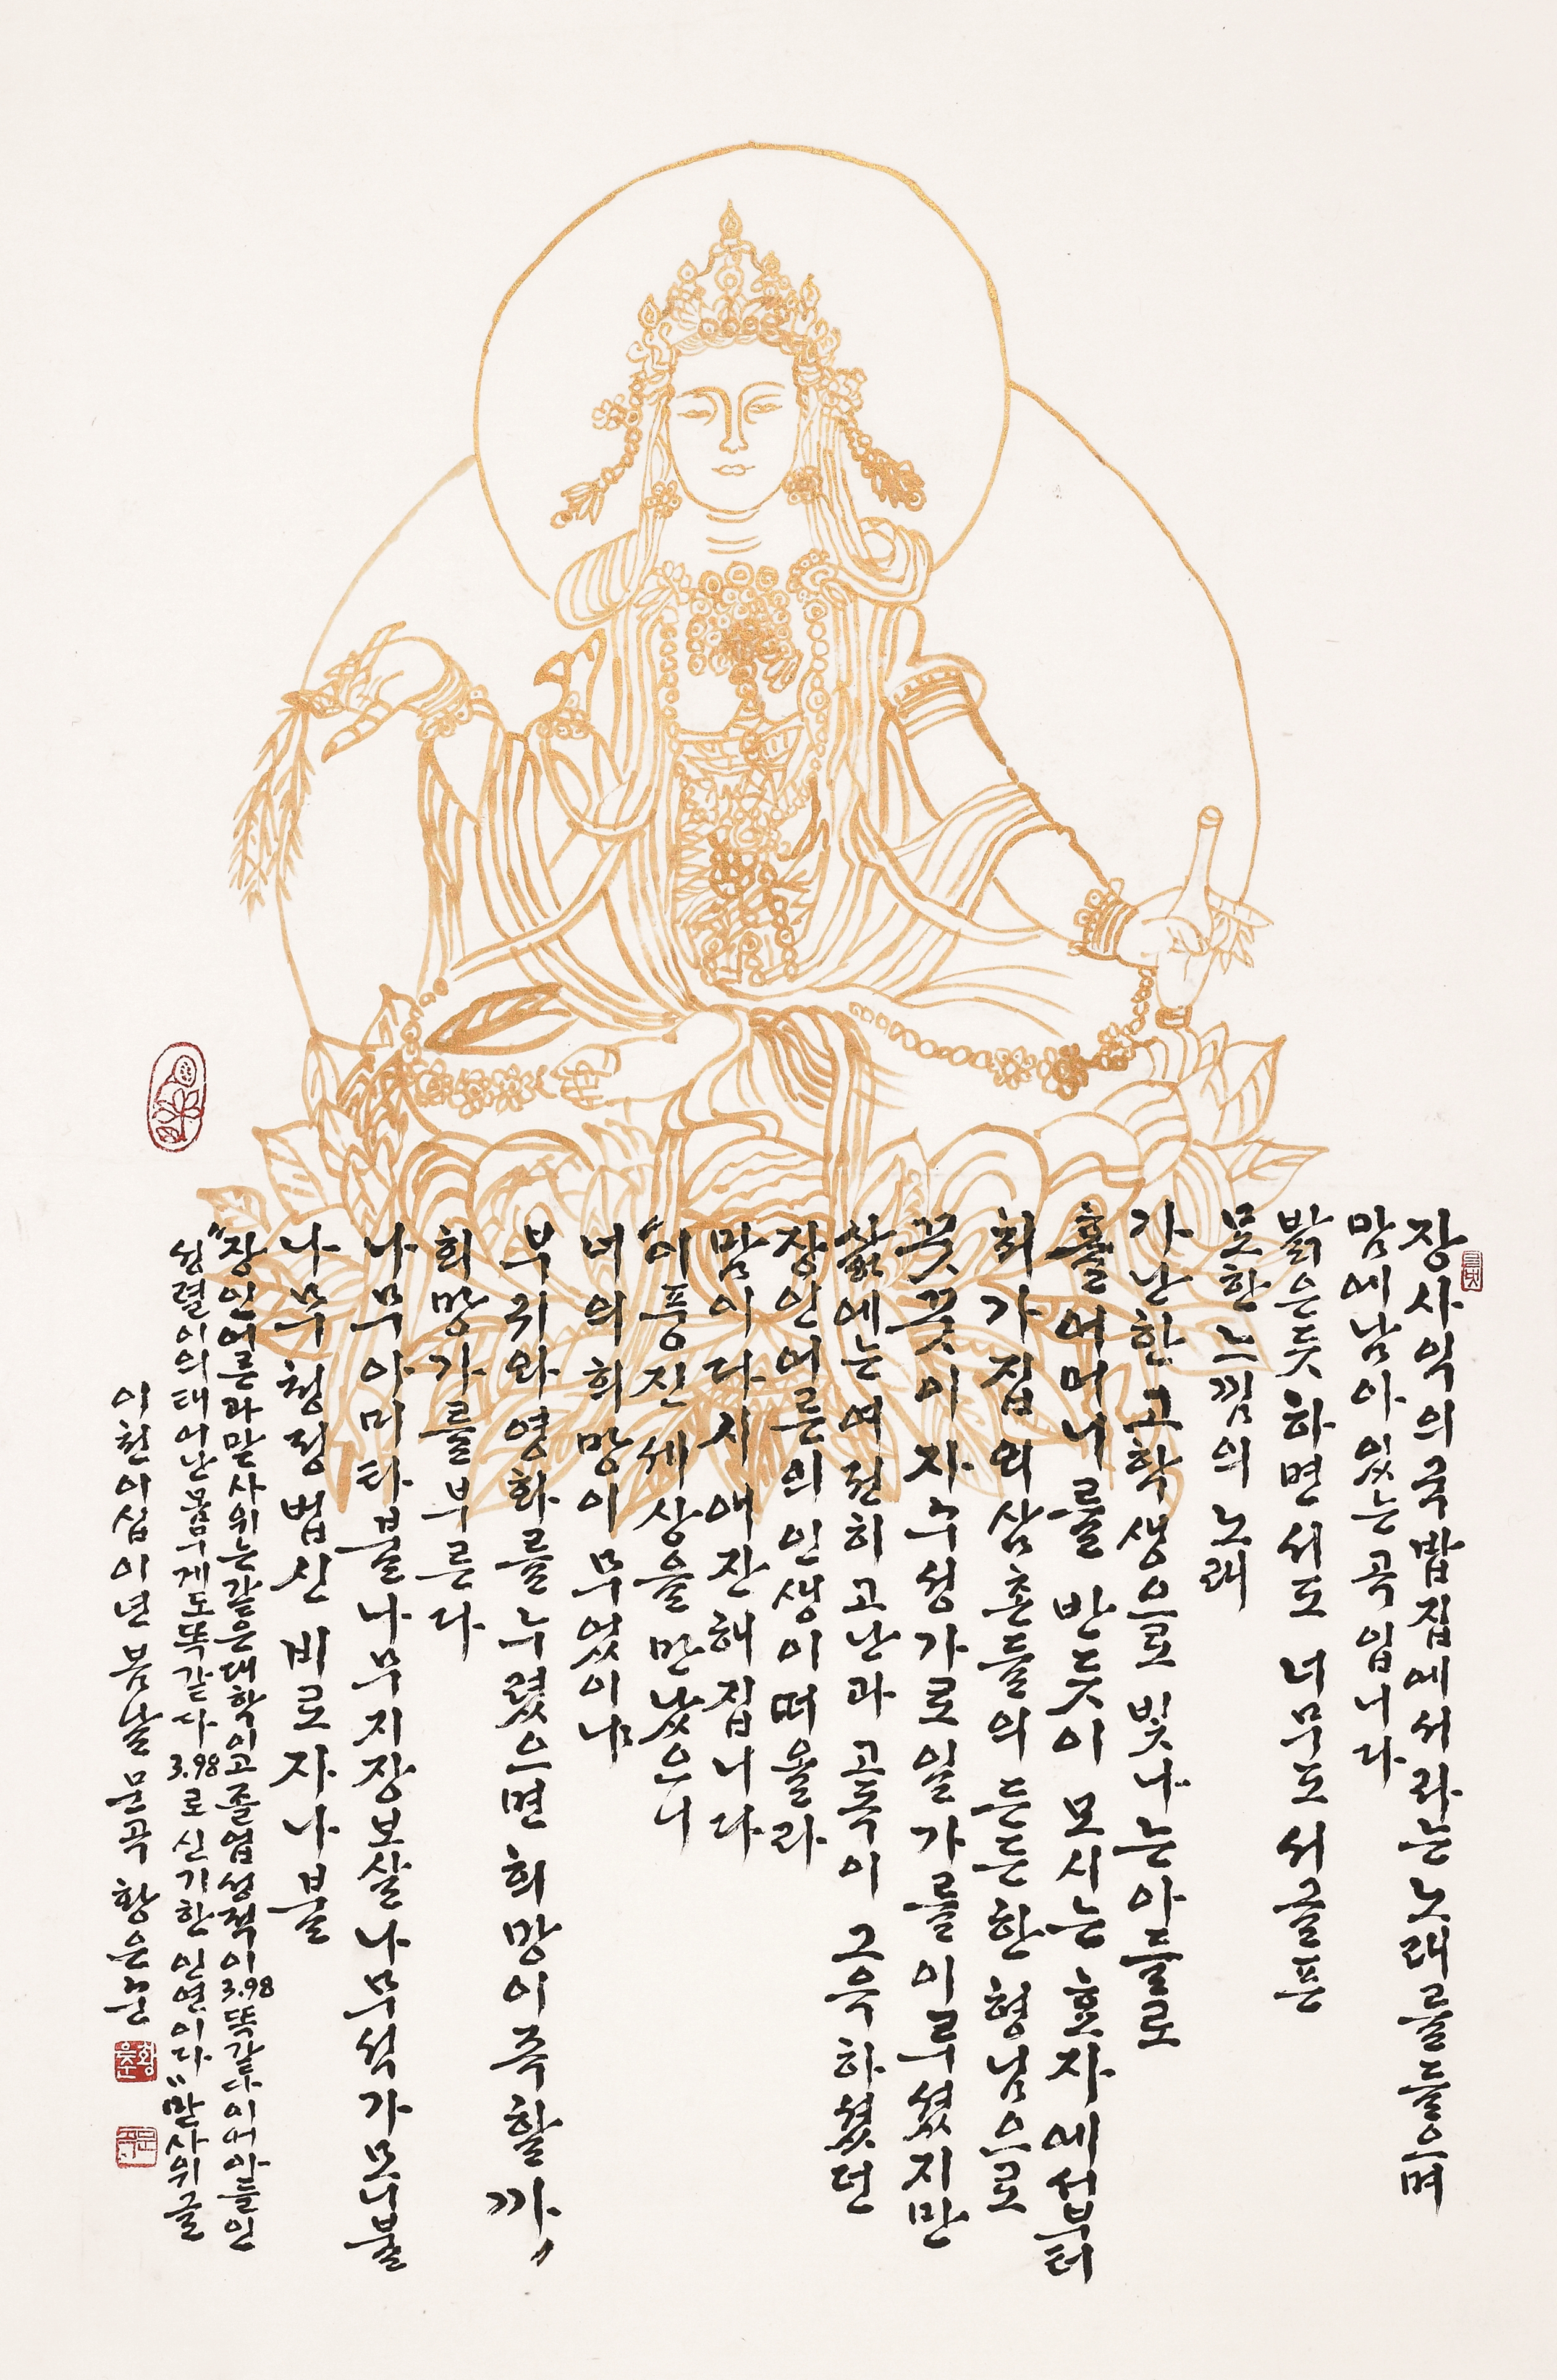 장사익의 국밥집에서라는 노래를 들으며
맘에 남아 있는 곡입니다
밝은듯 하면서도 너무도 서글픈
묘한 느낌의 노래
가난한 고학생으로 빛나는 아들로
홀어머니를 반듯이 모시는 효자에서부터
처가집의 삼촌들의 든든한 형님으로
꿋꿋이 자수성가로 일가를 이루셨지만
삶에는 여전히 고난과 고독이 그윽하셨던
장인어른의 인생이 떠올라
맘이 다시 애잔해집니다
"이 풍진 세상을 만났으니
너의 희망이 무엇이냐
부귀와 영화를 누렸으면 희망이 족할까"
희망가를 부른다
나무아미타불 나무지장보살 나무석가모니불
나무청정법신 비로자나불
"장인어른과 맏사위는 같은 대학이고 졸업성적이 3.98 똑같다 이어 아들인
성렬이의 태어난 몸무게도 똑같다 3.98로 신기한 인연이다" 맏사위 글
이천이십이년 봄날 문곡 황윤준
황윤준
문곡